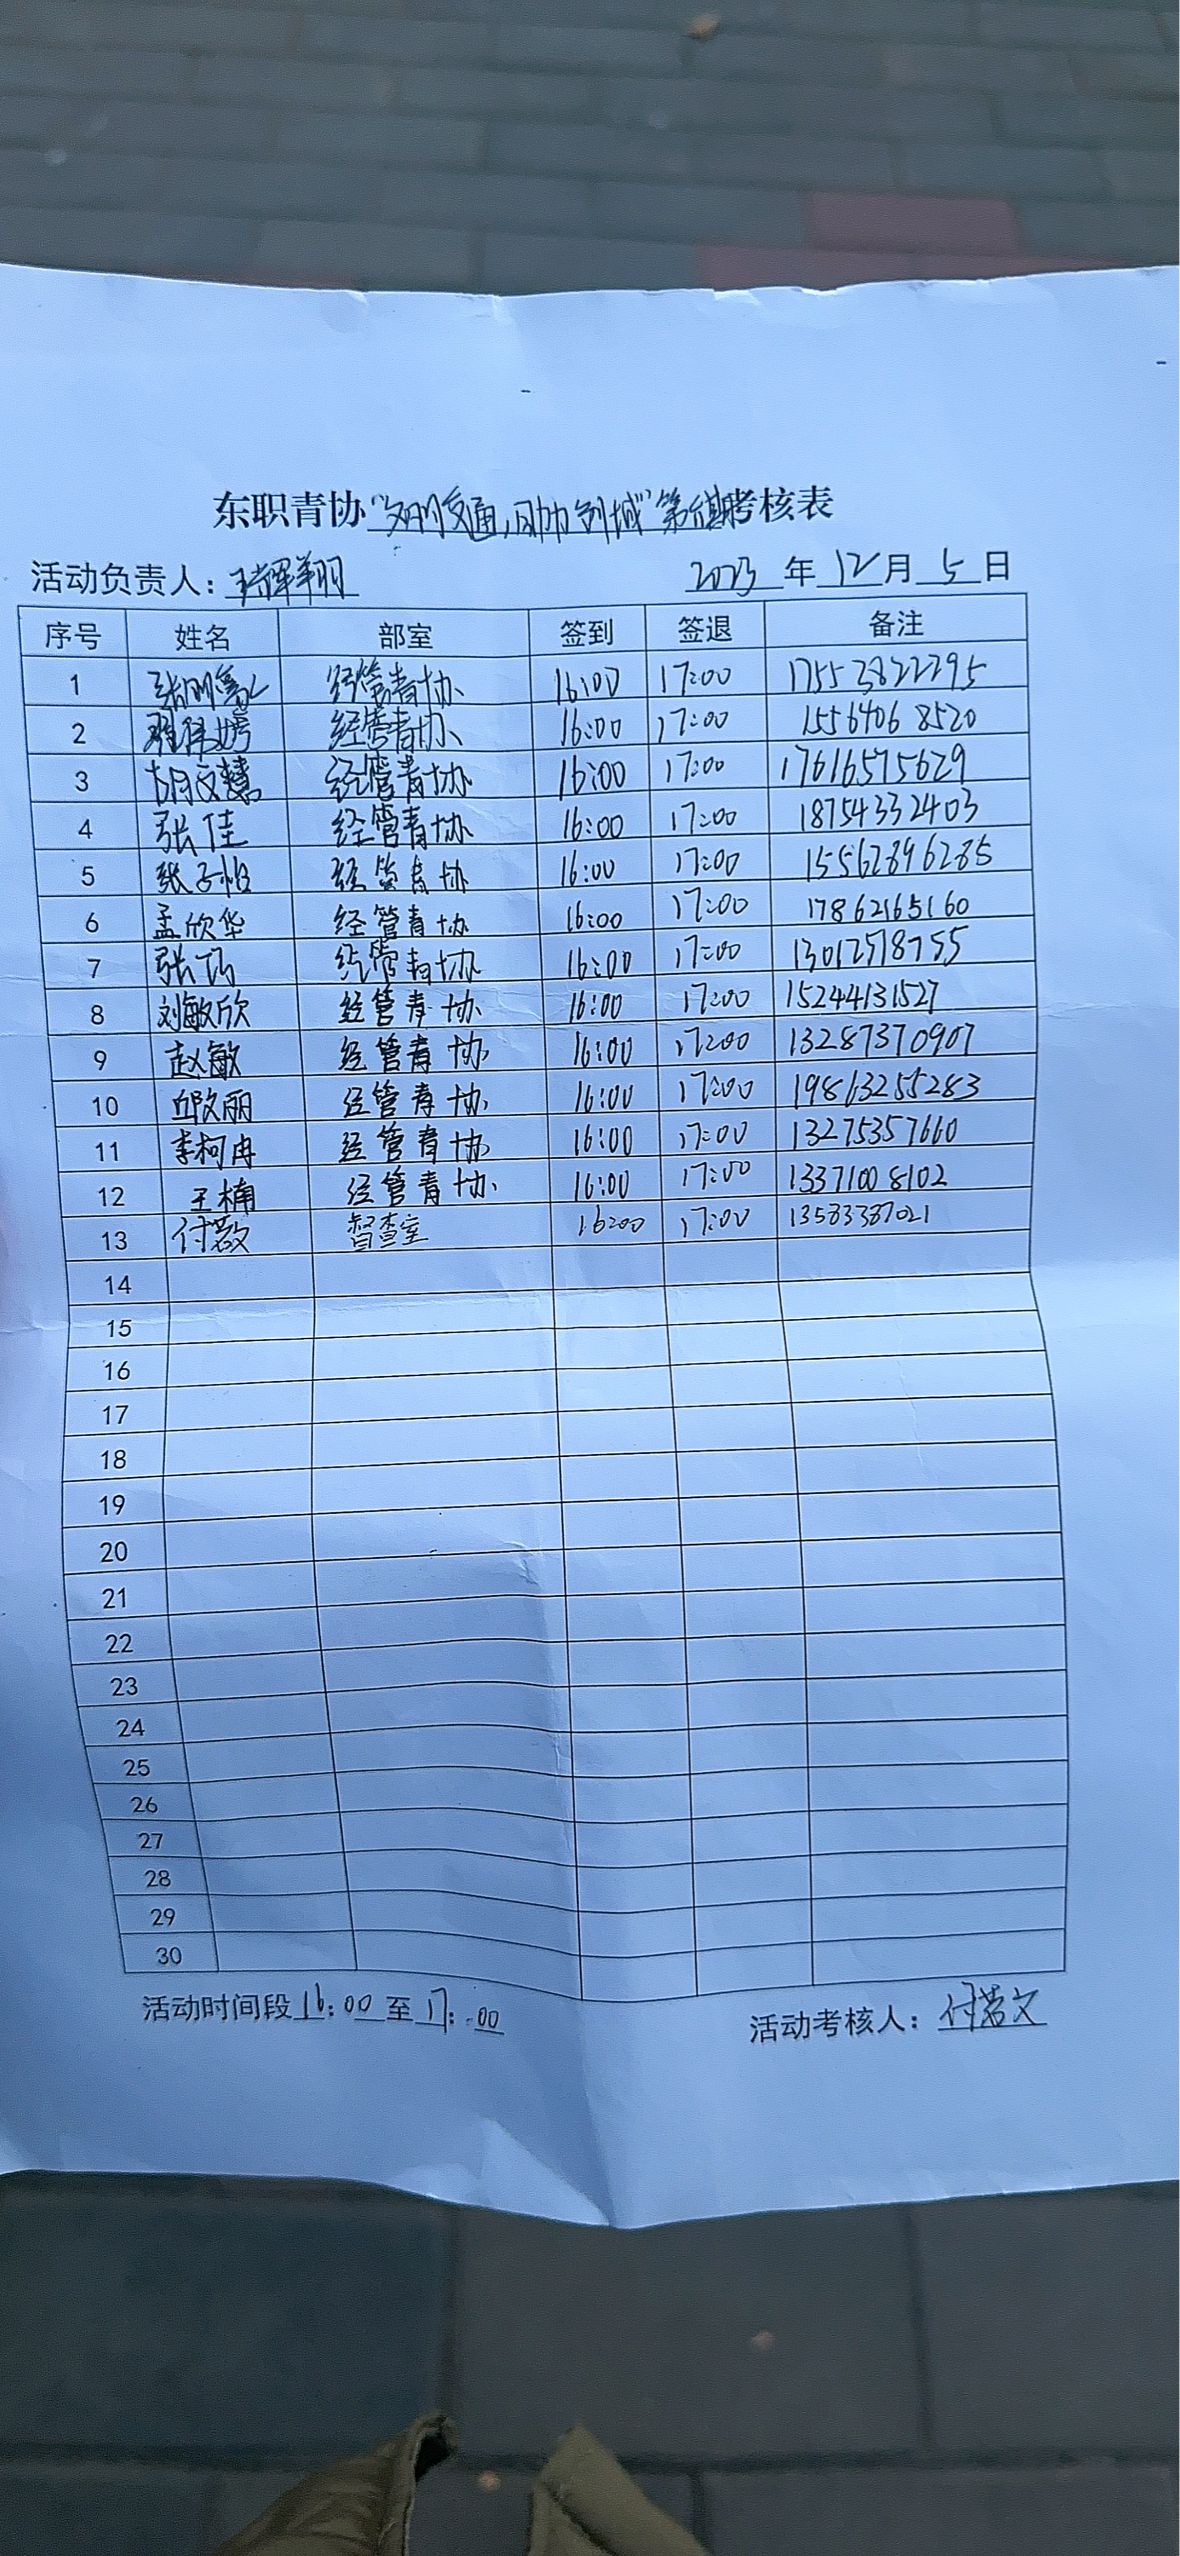 东职青协“文明交通，助力创城”第 期考核表
活动负责人： 辉翔 2023年12月5日
序号 姓名 部室 签到 签退 备注
1 张明 经管青协 16:00 17:00 17553822295
2 经管青协 16:00 17:00 15564068520
3 胡文慧 经管青协 16:00 17:00 17616575629
4 张佳 经管青协 16:00 17:00 18754332403
5 张子怡 经管青协 16:00 17:00 15562896285
6 孟欣华 经管青协 16:00 17:00 17862165160
7 张巧 经管青协 16:00 17:00 13012578755
8 刘敏欣 经管青协 16:00 17:00 15244131527
9 赵敏 经管青协 16:00 17:00 13287370907
10 邱欣丽 经管青协 16:00 17:00 19863255283
11 李柯冉 经管青协 16:00 17:00 13275357660
12 王楠 经管青协 16:00 17:00 13371008102
13 付若文 督查室 16:00 17:00 13583387021
14
15
16
17
18
19
20
21
22
23
24
25
26
27
28
29
30
活动时间段16:00至17:00 活动考核人：付若文